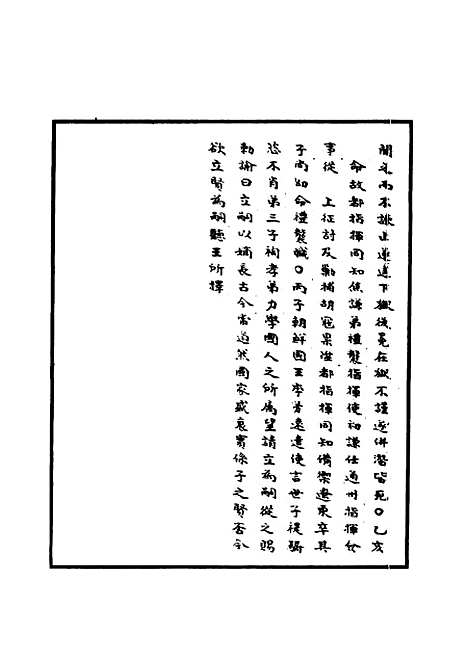 聞之而不諫止遂逮下獄後冕在獄不謹遂併潛皆死〇乙亥
命故都指揮同知張謙弟禮襲指揮使初謙仕通州指揮僉
事從　上征討及勦捕胡寇累陞都指揮同知備禦遼東卒其
子尚幼命禮襲職〇丙子朝鮮國王李芳遠遣使言世子禔驕
恣不肖第三子祹孝弟力學國人之所屬望請立為嗣從之賜
勅諭曰立嗣以嫡長古今常道然國家盛衰實係子之賢否今
欲立賢為嗣聽王所擇